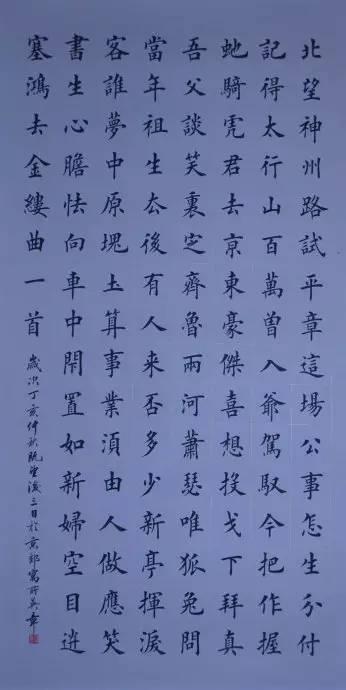 北望神州路試平章這場公事怎生分付
記得太行山百萬曽入爺駕馭今把作握
虵騎虎君去京東豪傑喜想投戈下拜真
吾父談笑裏定齊魯兩河蕭瑟唯狐兔問
當年祖生去後有人来否多少新亭揮淚
客誰夢中原塊土算事業湏由人做應笑
書生心膽怯向車中閇置如新婦空目送
塞鴻去金縷曲一首
歲次丁亥仲秋既望後三日於京郊寓所英章